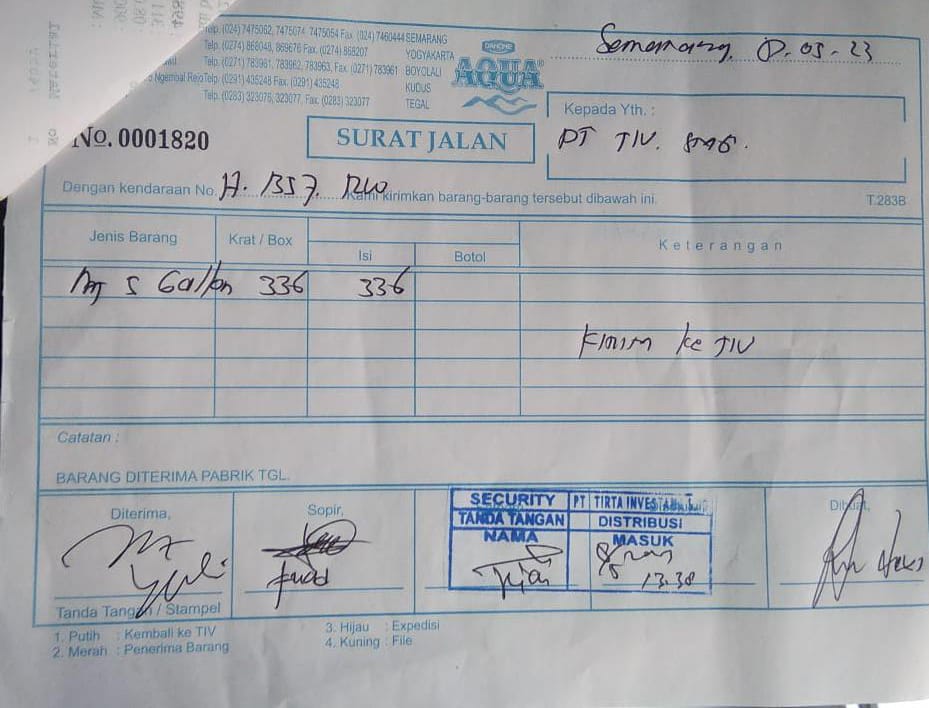 Telp. (024) 7475062, 7475074 7475054 Fax (024) 7460444 SEMARANG
Telp. (0274) 868048, 869676 Fax. (0274) 868207 YOGYAKARTA
Telp. (0271) 783961, 783962, 783963, Fax. (0271) 783961 BOYOLALI
Ngembal Rejo Telp. (0291) 435248 Fax. (0291) 435248 KUDUS
Telp. (0283) 323076, 323077, Fax. (0283) 323077 TEGAL
DANONE
AQUA
05-23
Kepada Yth. :
PT TIV.
No. 0001820
SURAT JALAN
Dengan kendaraan No. Kami kirimkan barang-barang tersebut dibawah ini.
T.283B
Jenis Barang Krat / Box Isi Botol Keterangan
5 Gallon 336 336
Kirim ke TIV
Catatan :
BARANG DITERIMA PABRIK TGL.
Diterima,
Sopir,
SECURITY PT TIRTA INVESTAMA
TANDA TANGAN DISTRIBUSI
NAMA MASUK
13.38
Dibuat,
Tanda Tangan / Stampel
1. Putih : Kembali ke TIV
2. Merah : Penerima Barang
3. Hijau : Expedisi
4. Kuning : File